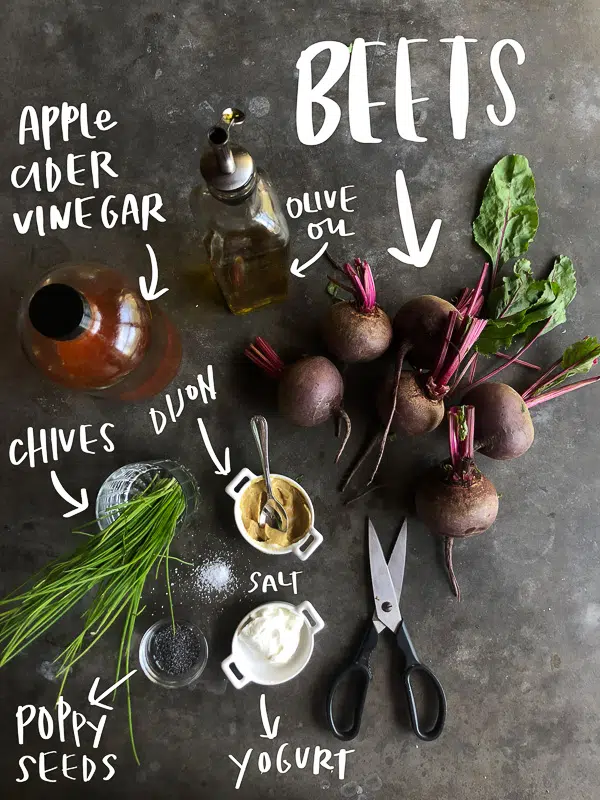 BEETS
APPLE
CIDER
VINEGAR
OLIVE
OIL
DIJON
CHIVES
SALT
POPPY
SEEDS
YOGURT